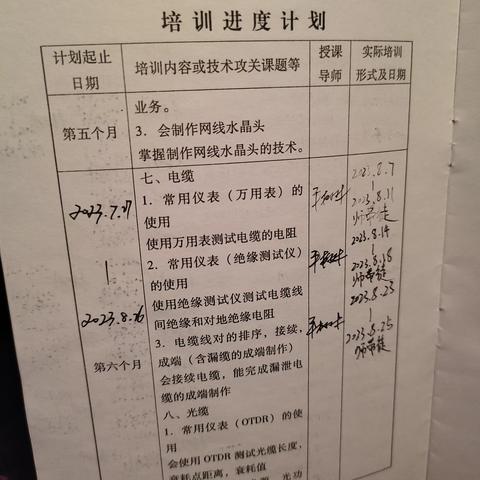 培训进度计划
计划起止
日期
培训内容或技术攻关课题等
授课
导师
实际培训
形式及日期
第五个月
业务。
3．会制作网线水晶头
掌握制作网线水晶头的技术。
2023.7.17
2023.8.16
第六个月
七、电缆
1．常用仪表（万用表）的
使用
使用万用表测试电缆的电阻
2．常用仪表（绝缘测试仪）
的使用
使用绝缘测试仪测试电缆线
间绝缘和对地绝缘电阻
3．电缆线对的排序，接续，
成端（含漏缆的成端制作）
会接续电缆，能完成漏泄电
缆的成端制作
八、光缆
1．常用仪表（OTDR）的使
用
会使用 OTDR 测试光缆长度，
衰耗点距离，衰耗值
2023.8.7
2023.8.11
师带徒
2023.8.14
2023.8.18
师带徒
2023.8.23
2023.8.25
师带徒